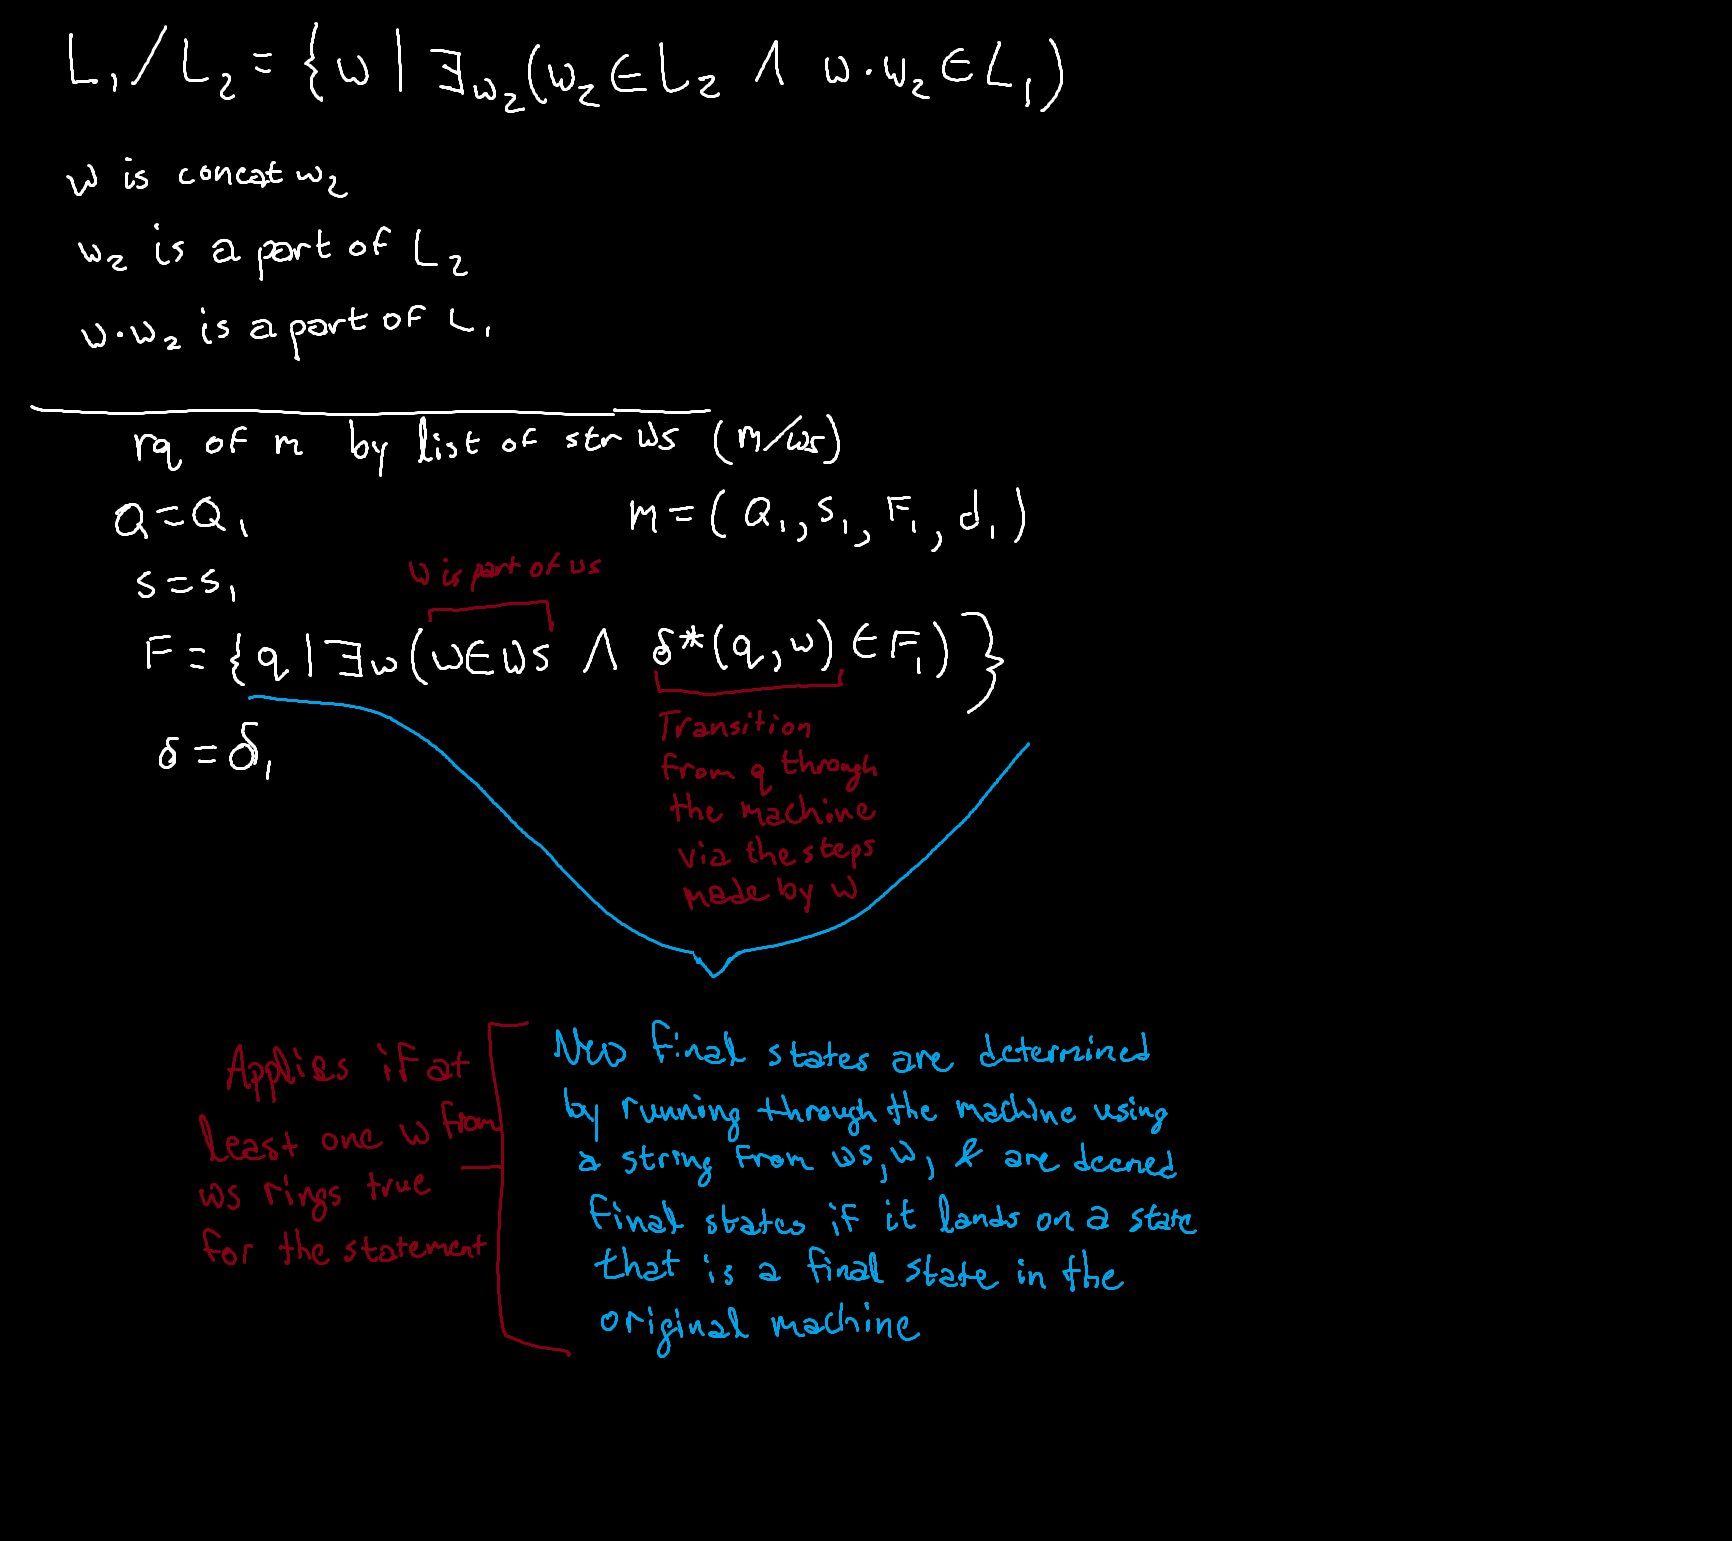 L₁/L₂ = {w | ∃w₂(w₂ ∈ L₂ ∧ w·w₂ ∈ L₁)
w is concat w₂
w₂ is a part of L₂
w·w₂ is a part of L₁
rq of m by list of str ws (m/ws)
Q = Q₁
m = (Q₁, s₁, F₁, d₁)
s = s₁
w is part of ws
F = {q | ∃w(w∈ws ∧ δ*(q,w) ∈ F₁)}
δ = δ₁
Transition
from q through
the machine
via the steps
made by w
Applies if at
least one w from
ws rings true
for the statement
New final states are determined
by running through the machine using
a string from ws, w, & are deemed
final states if it lands on a state
that is a final state in the
original machine